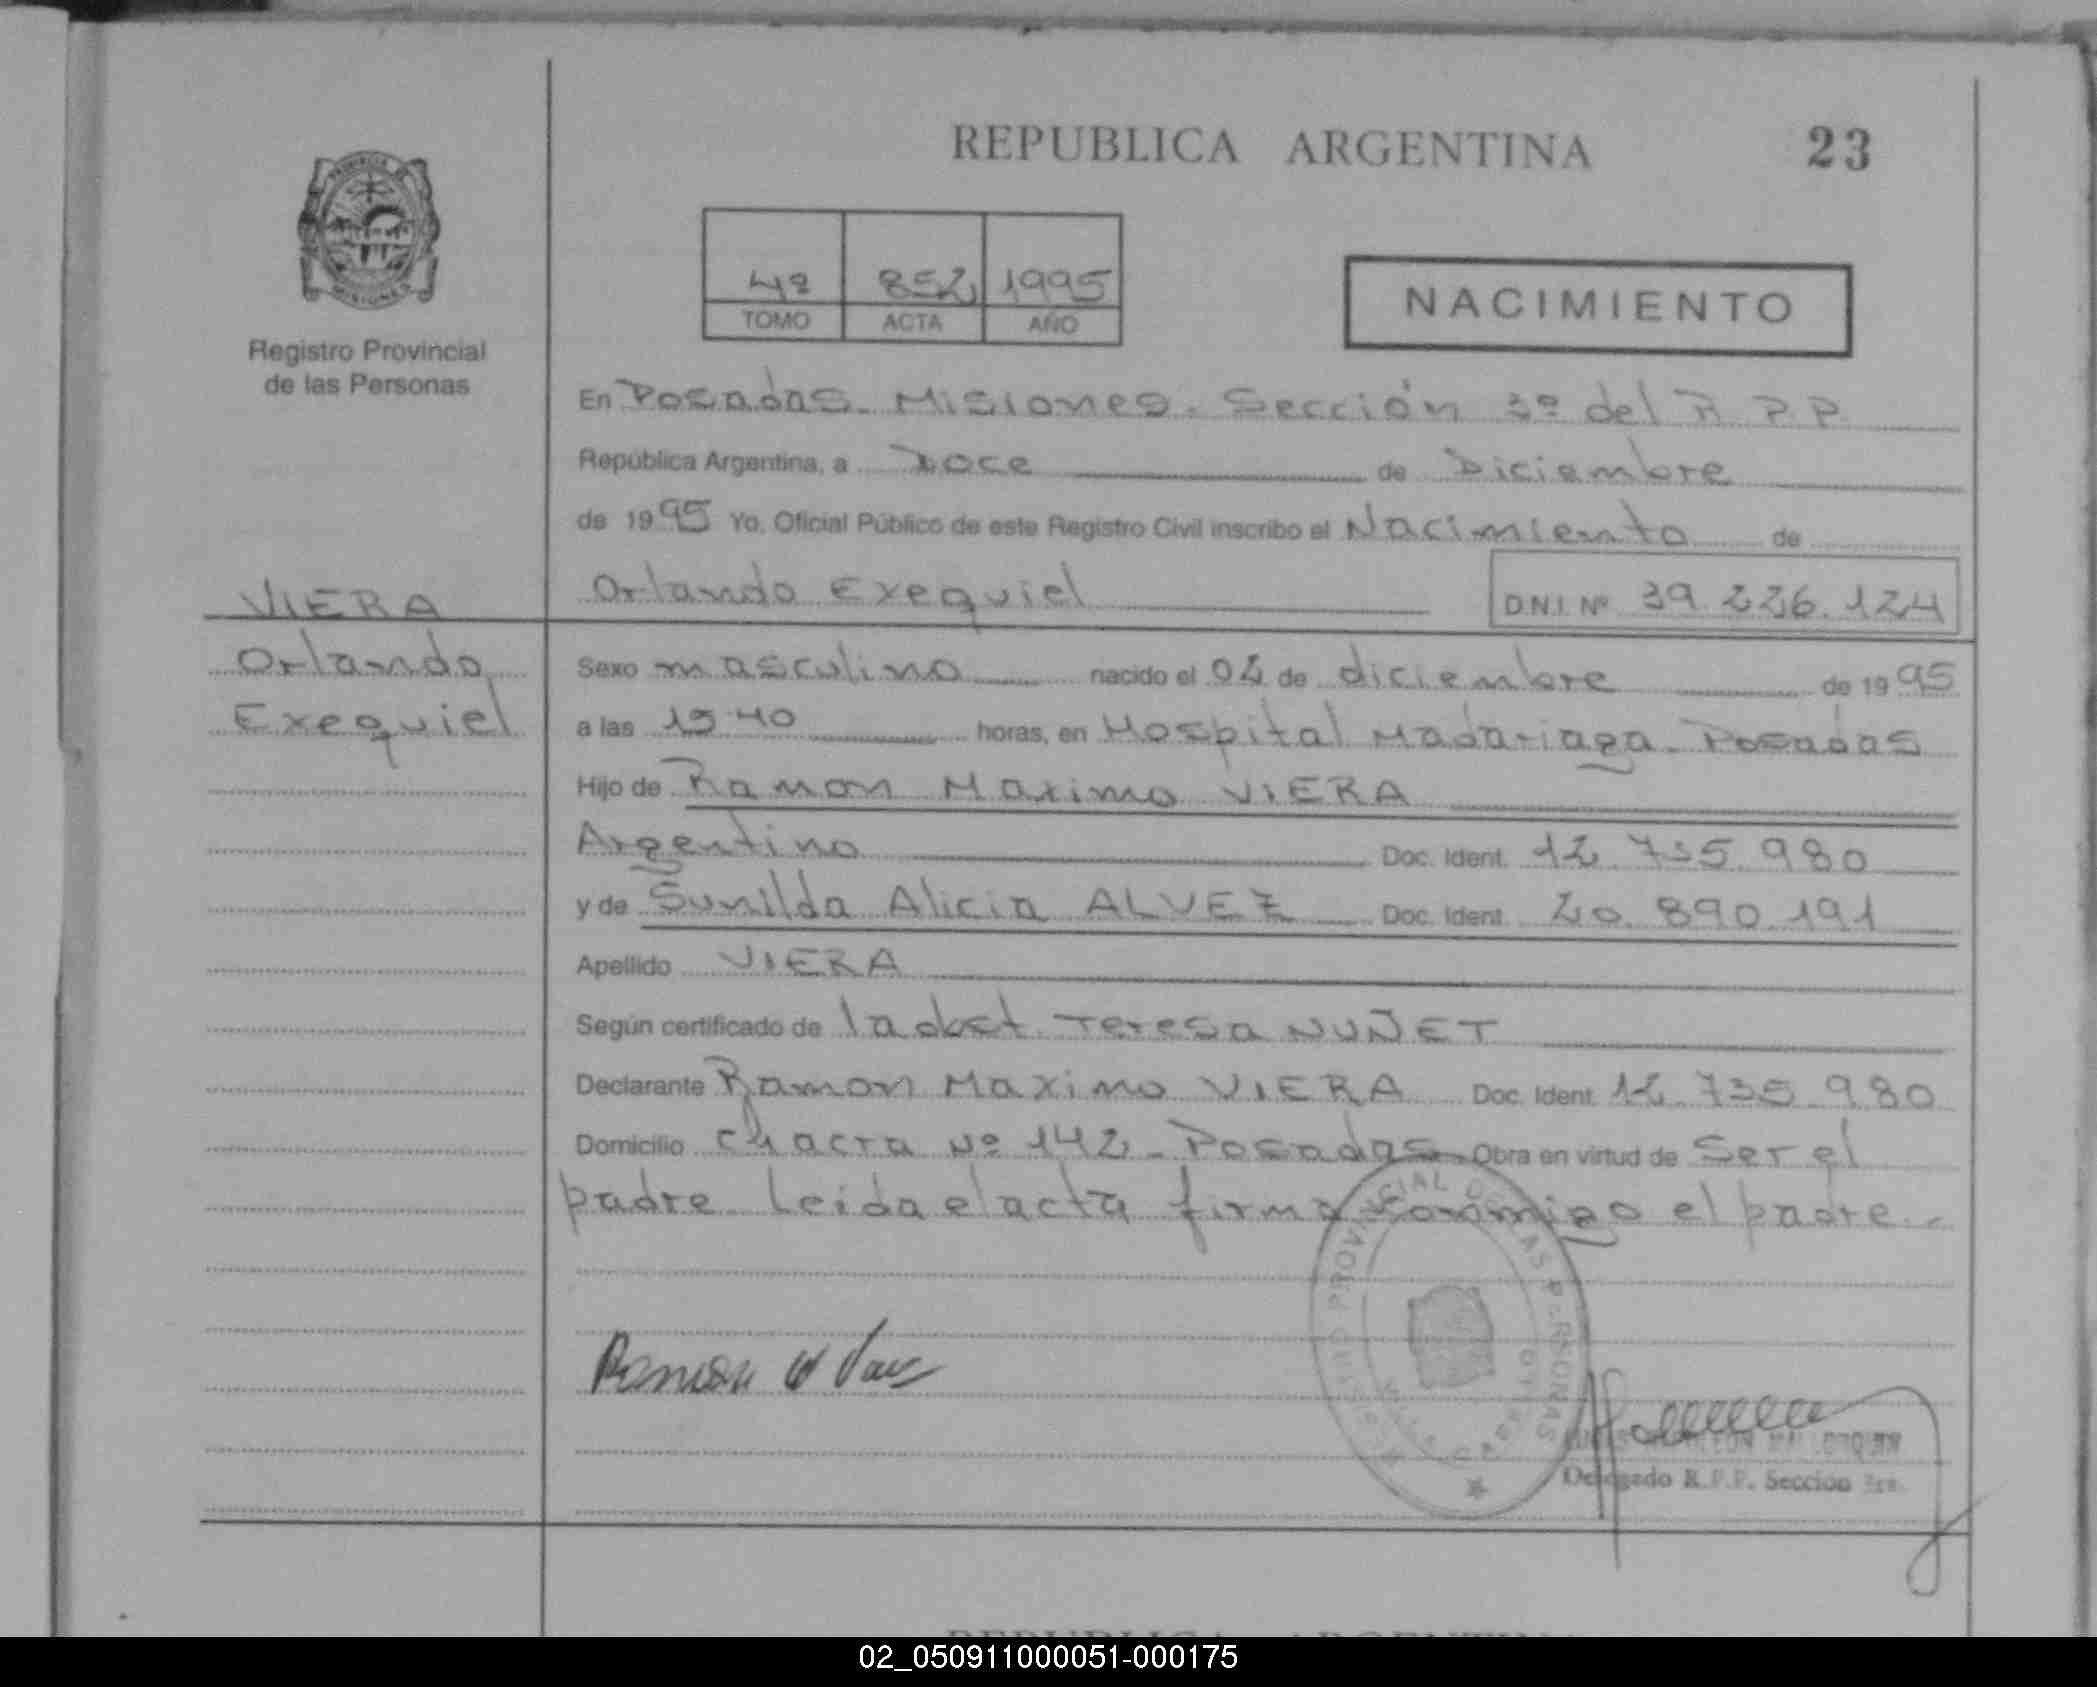 REPUBLICA ARGENTINA 23
PROVINCIA DE
MISIONES
Registro Provincial
de las Personas
4º 852 1995
TOMO ACTA AÑO
NACIMIENTO
En Posadas. Misiones. Sección 3º del R.P.P.
República Argentina, a Doce de Diciembre
de 1995 Yo, Oficial Público de este Registro Civil inscribo el Nacimiento de
Orlando Exequiel D.N.I. Nº 39.226.124
VIERA
Orlando
Exequiel
Sexo masculino nacido el 04 de diciembre de 1995
a las 19 40 horas, en Hospital Madariaga. Posadas
Hijo de Ramon Maximo VIERA
Argentino Doc. Ident. 12.735.980
y de Sunilda Alicia ALVEZ Doc. Ident. 20.890.191
Apellido VIERA
Según certificado de la obst. Teresa NUÑET
Declarante Ramon Maximo VIERA Doc. Ident. 12.735.980
Domicilio Chacra Nº 142 - Posadas Obra en virtud de Ser el
padre Leida el acta firma conmigo el padre.-
REGISTRO PROVINCIAL DE LAS PERSONAS
Ramon
Delegado R.P.P. Seccion 3ra.
REPUBLICA ARGENTINA
02_050911000051-000175